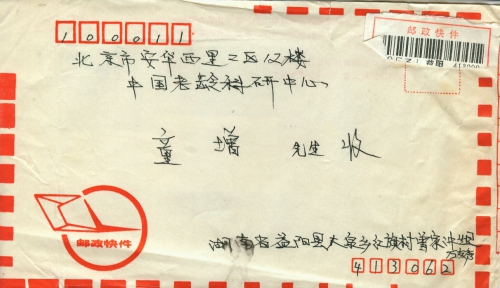 100011
邮政快件
北京市安华西里二区仪楼
益阳 413000
中国老龄科研中心
童增 先生 收
邮政快件
湖南省益阳县大泉乡红旗村曾家冲组
413062